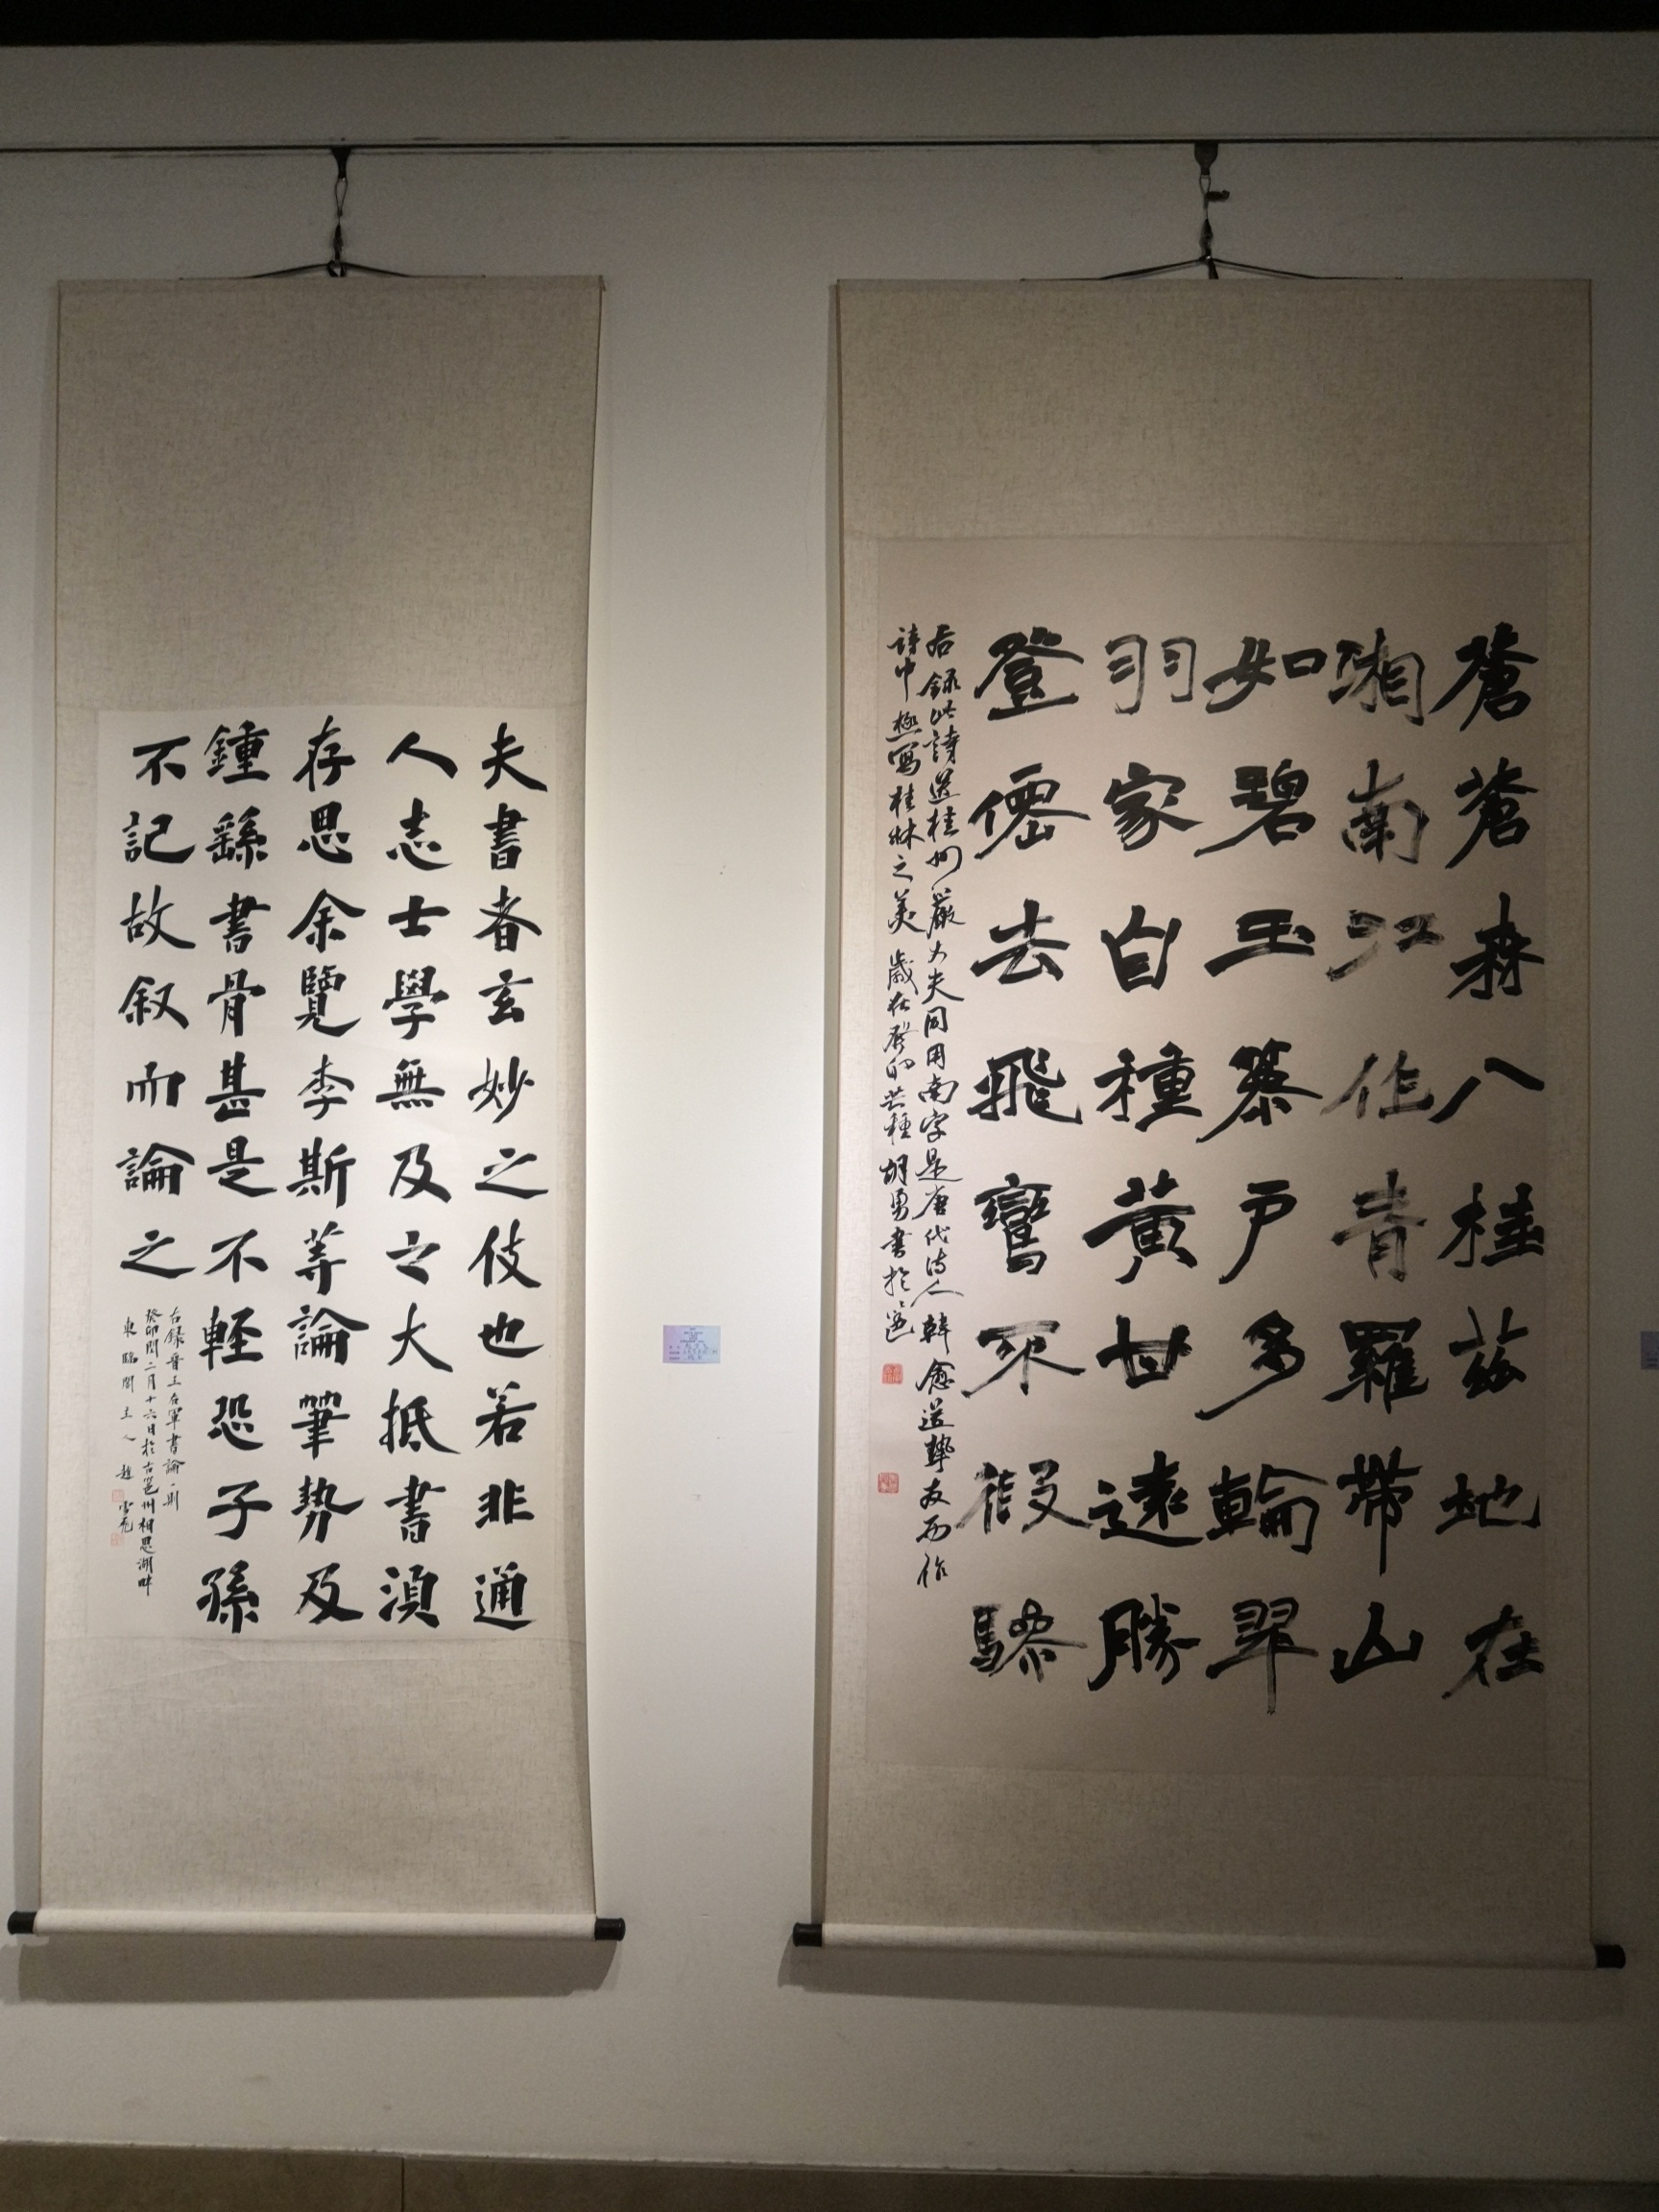 蒼蒼森八桂茲地在
湘南江作青羅帶山
如碧玉篸戶多輪翠
羽家自種黃甘遠勝
登僊去飛鸞不假驂
右録此詩送桂州嚴大夫同用南字是唐代詩人韓愈送摯友而作
詩中極寫桂林之美歲在癸卯芒種胡勇書於邕
夫書者玄妙之伎也若非通
人志士學無及之大抵書湏
存思余覽李斯等論筆勢及
鍾繇書骨甚是不輕恐子孫
不記故叙而論之
右録晉王右軍書論一則
癸卯閏二月十六日於古邕州相思湖畔
東臨閣主人趙